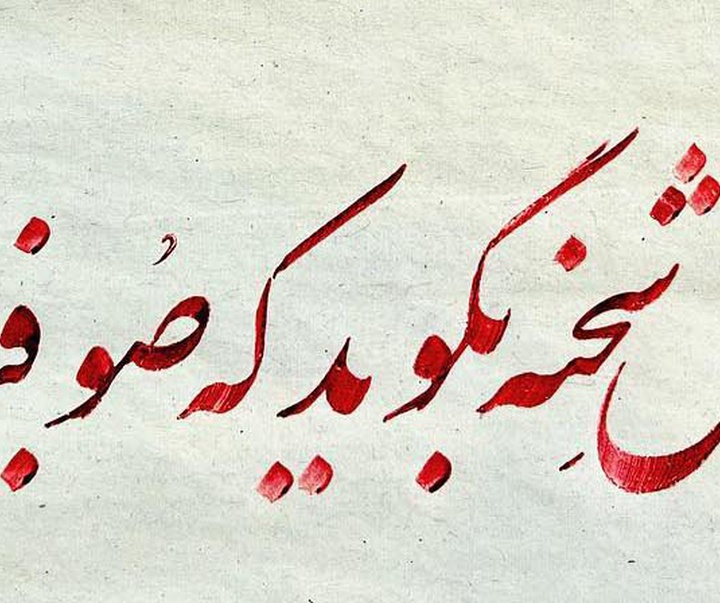 شحنه بگوید که صُو